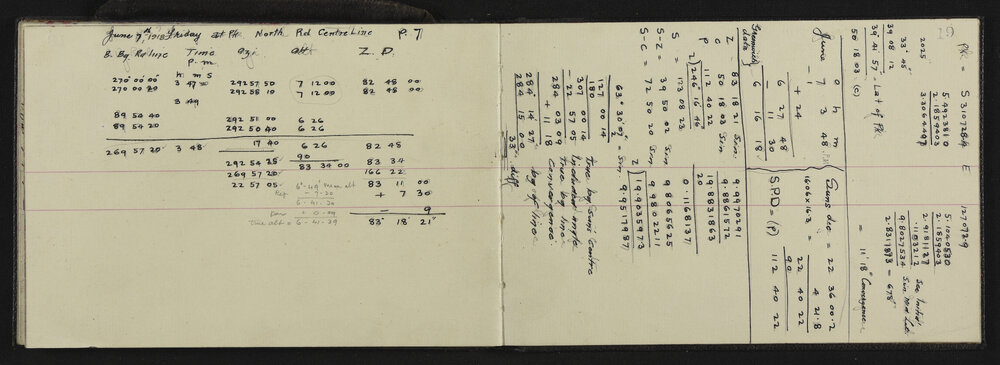 June 7th, 1918 Friday at Pk. North Rd Centre Line P. 7
B. By. Ro Line Time Azi Alt Z. D.
P. m.
h m s
270° 00' 00 3 47 292 57 50 7 12 00 82 48 00
270 00 20 292 58 10 7 12 00 82 48 00
3 49
89 54 40 292 51 00 6 26
89 54 20 292 50 40 6 26
269 57 20 3 48 17 40 6 26 82 48
90
292 54 25 83 34 00 83 34
269 57 20 166 22
22 57 05 6° 49' Mean alt 83 11 00
Ref - 7 - 30 + 7 30
6 - 41 - 30
Par + 0 - 09 - 9
True alt = 6 - 41 - 39 83° 18' 21"
19
Pk = S 310728.4 E 127072.9
2025 5.4923810 5.1040530
2.1859403 2.1859403
33° 45' 3.3064407 2.9181127
.1183212
39 08 12 9.8027534 Sin M. Lat.
39° 41' 57 = Lat of Pk. 2.8317873 = 678"
50 18 03 (c) = 11' 18" Convergence
d h m
June 7 3 48 P.M. Suns dec = 22 36 00.2
- 1 + 24 16.06 x 16.3 = 4 21.8
6 27 48 22 40 22
- 11 30 90
6 16 18 S.P.D = (P) 112 40 22
Greenwich date
Z 83 18 21 Sin. 9.9970291
50 18 03 Sin 9.8861572
P 112 40 22 19.8831863
2) 246 16 46 20
S = 123 08 23 0.1168137
S-Z = 39 50 02 Sin 9.8065625
S-C = 72 50 20 Sin 9.9802211
2) 19.9035973
63° 30' 07" = Sin 9.9517987
2
127 00 14
180
307 00 14 true brg Suns centre
- 22 57 05 Included angle
284 03 09 true brg line
+ 11 18 Convergence
284° 14' 27" brg of line
284 15 00
33" diff.